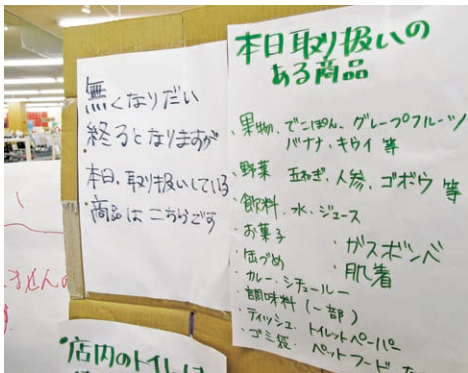 無くなりだい
終るとなりますが
本日、取り扱いしている
商品はこちらです
本日取り扱いの
ある商品
・果物、でこぽん、グレープフルーツ
バナナ、キウイ 等
・野菜 玉ねぎ、人参、ゴボウ 等
・飲料、水、ジュース
・お菓子
・缶づめ
・ガスボンベ
・肌着
・カレー、シチュールー
・調味料(一部)
・ティッシュ、トイレットペーパー
・ゴミ袋、ペットフード
・店内のトイレは